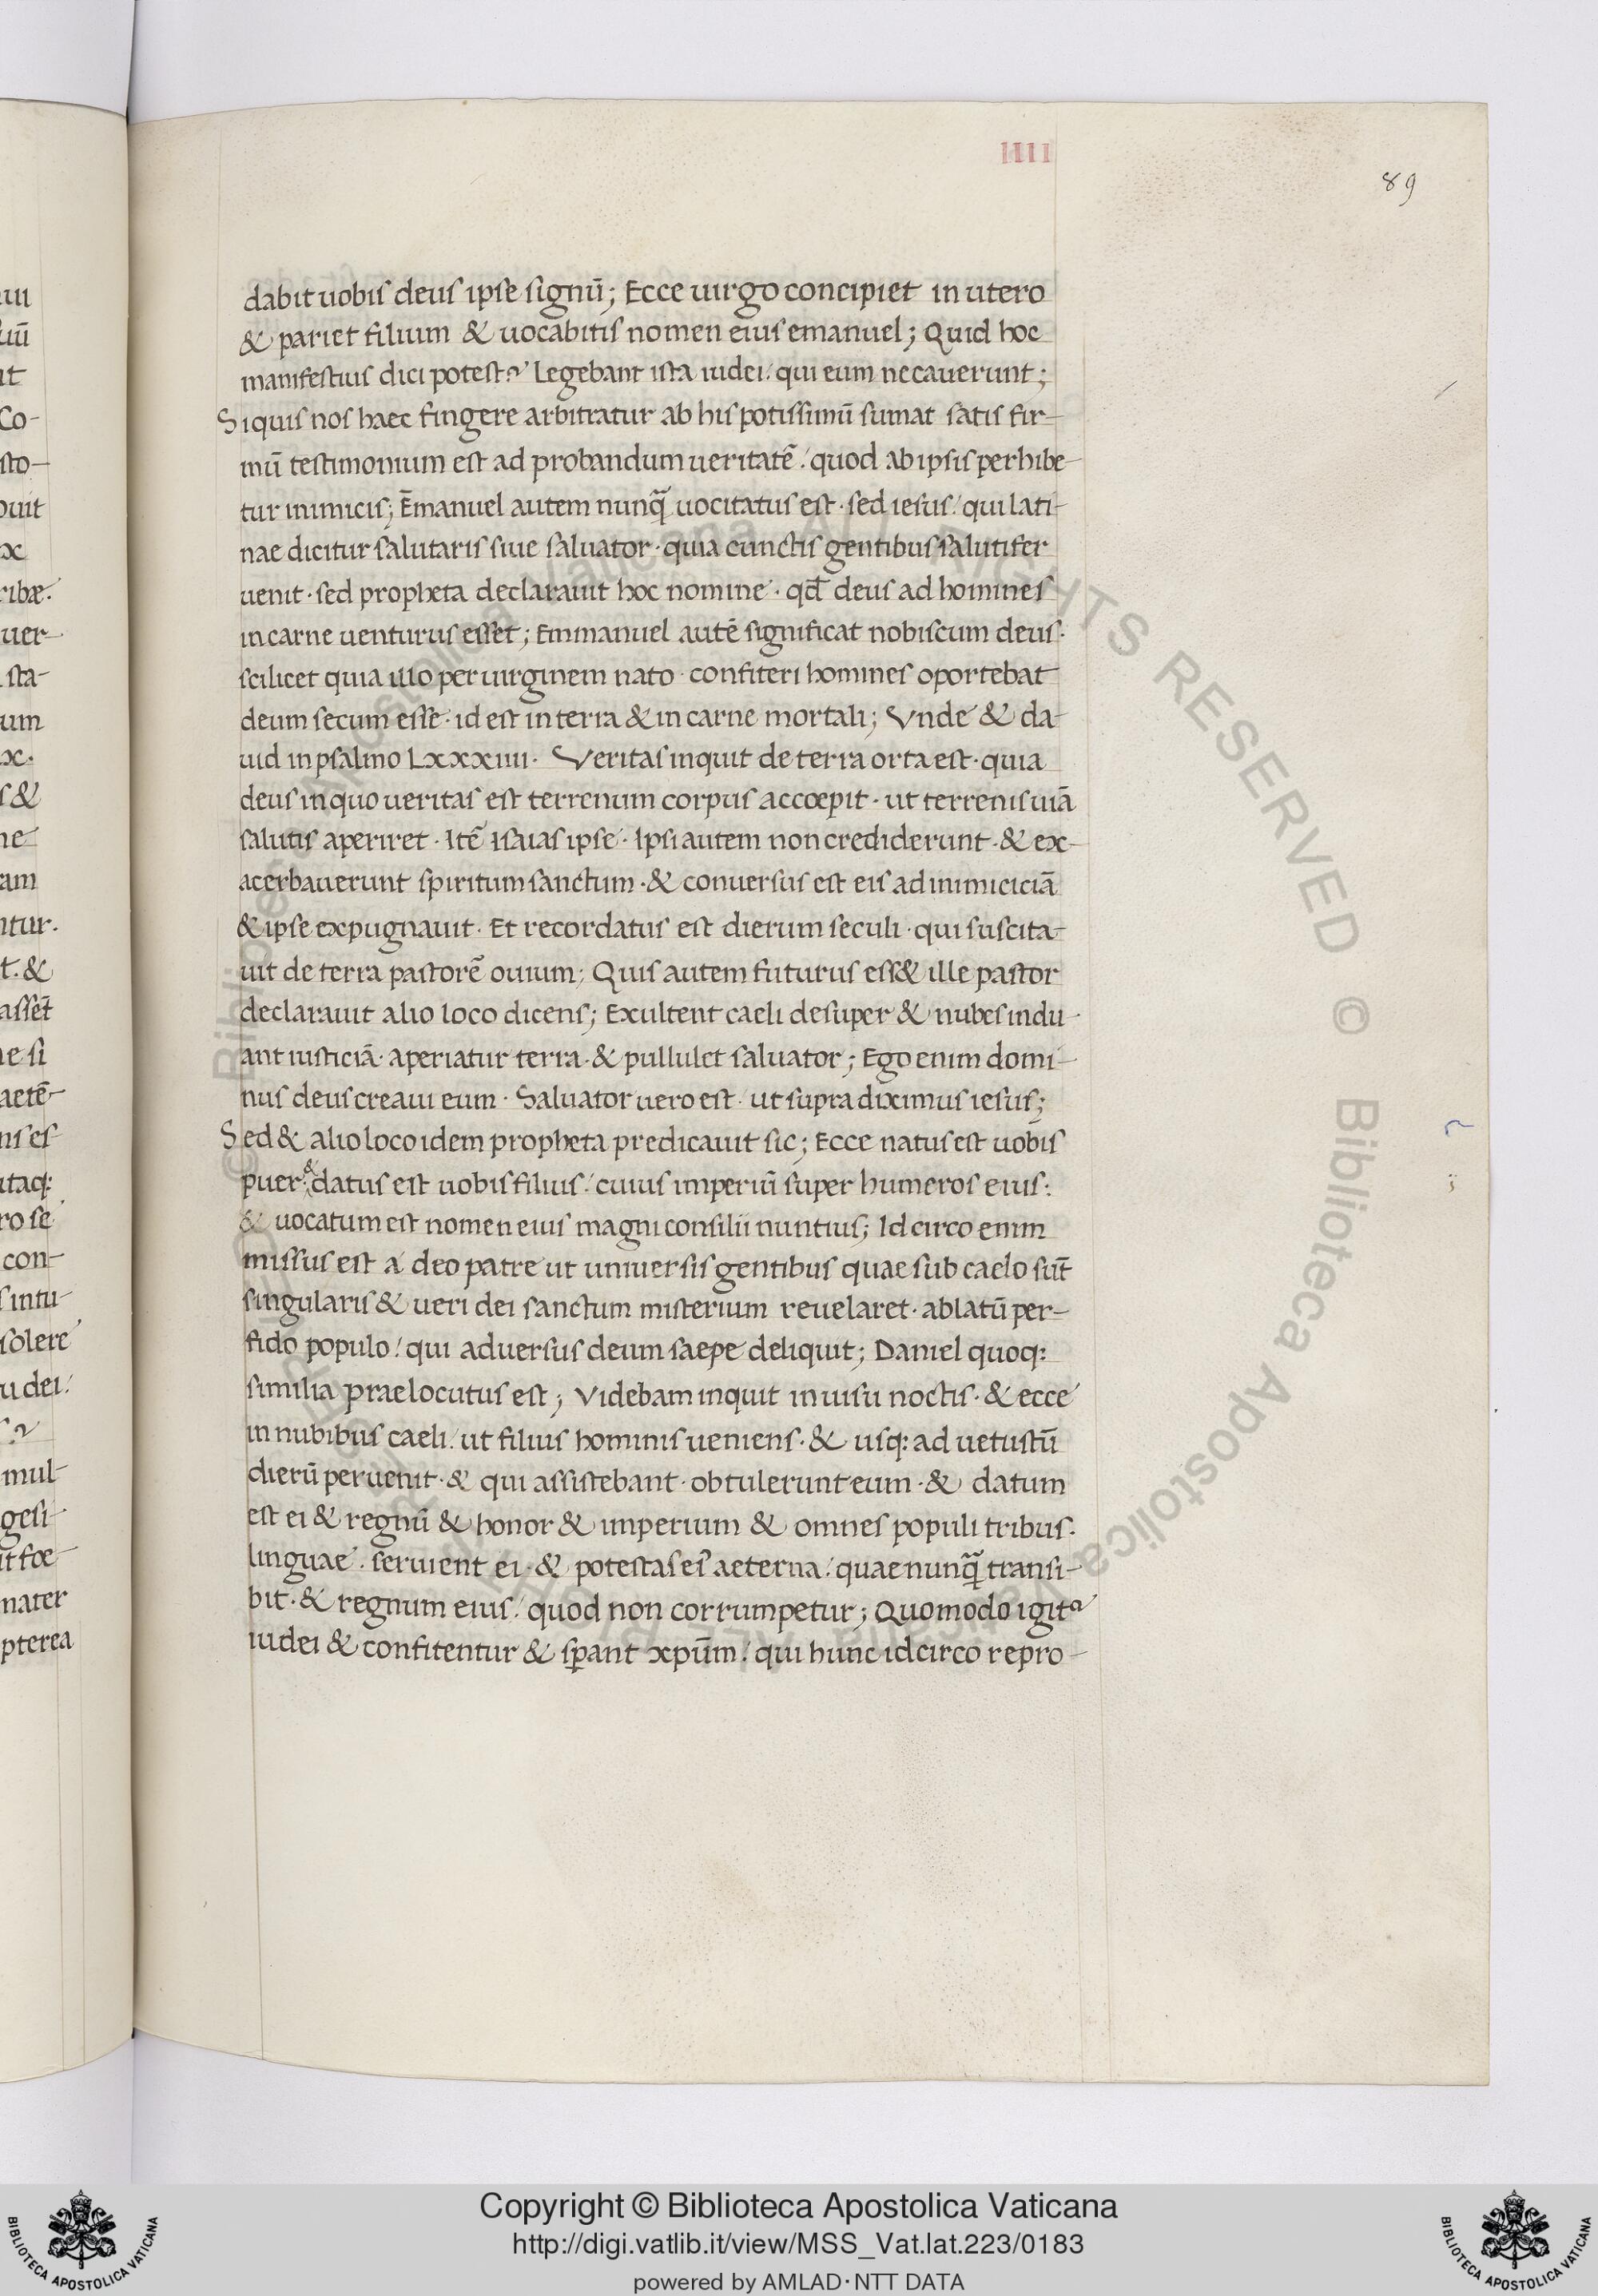 IIII
89
dabit uobis deus ipse signū; Ecce uirgo concipiet in utero
& pariet filium & uocabitis nomen eius emanuel; Quid hoc
manifestius dici potest? Legebant ista iudei/ qui eum necauerunt;
Siquis nos haec fingere arbitratur ab his potissimū sumat satis fir-
mū testimonium est ad probandum ueritatē/ quod ab ipsis perhibe-
tur inimicis; Ēmanuel autem nunq̄ uocitatus est · sed iesus/ qui lati-
nae dicitur salutaris siue saluator · quia cunctis gentibus salutifer
uenit · sed propheta declarauit hoc nomine · qd̄ deus ad homines
in carne uenturus esset; Emmanuel autē significat nobiscum deus·
scilicet quia illo per uirginem nato · confiteri homines oportebat
deum secum esse · id est in terra & in carne mortali; Vnde & da-
uid in psalmo Lxxxiiii· Veritas inquit de terra orta est · quia
deus in quo ueritas est terrenum corpus accœpit · ut terrenis uiā
salutis aperiret · Itē isaias ipse · Ipsi autem non crediderunt · & ex-
acerbauerunt spiritum sanctum · & conuersus est eis ad inimiciciā
& ipse expugnauit · Et recordatus est dierum seculi · qui suscita-
uit de terra pastorē ouium; Quis autem futurus ess& ille pastor
declarauit alio loco dicens; Exultent caeli desuper & nubes indu-
ant iusticiā · aperiatur terra · & pullulet saluator; Ego enim domi-
nus deus creaui eum · Saluator uero est · ut supra diximus iesus;
Sed & alio loco idem propheta predicauit sic; Ecce natus est uobis
puer/ & datus est uobis filius/ cuius imperiū super humeros eius:
& uocatum est nomen eius magni consilii nuntius; Id circo enim
missus est a deo patre ut uniuersis gentibus quae sub caelo sūt
singularis & ueri dei sanctum misterium reuelaret · ablatū per-
fido populo/ qui aduersus deum saepe deliquit; Daniel quoq:
similia praelocutus est; Videbam inquit in uisu noctis · & ecce
in nubibus caeli/ ut filius hominis ueniens · & usq: ad uetustū
dierū peruenit · & qui assistebant · obtulerunt eum · & datum
est ei & regnū & honor & imperium & omnes populi tribus·
linguae · seruient ei · & potestas ei᾽ aeterna/ quae nunq̄ transi-
bit · & regnum eius/ quod non corrumpetur; Quomodo igit᾽
iudei & confitentur & sp̄ant xpūm/ qui hunc idcirco repro-
Copyright © Biblioteca Apostolica Vaticana
http://digi.vatlib.it/view/MSS_Vat.lat.223/0183
powered by AMLAD·NTT DATA
BIBLIOTECA APOSTOLICA VATICANA
BIBLIOTECA APOSTOLICA VATICANA
© Biblioteca Apostolica Vaticana ALL RIGHTS RESERVED © Biblioteca Apostolica Vaticana ALL RIGHTS RESERVED